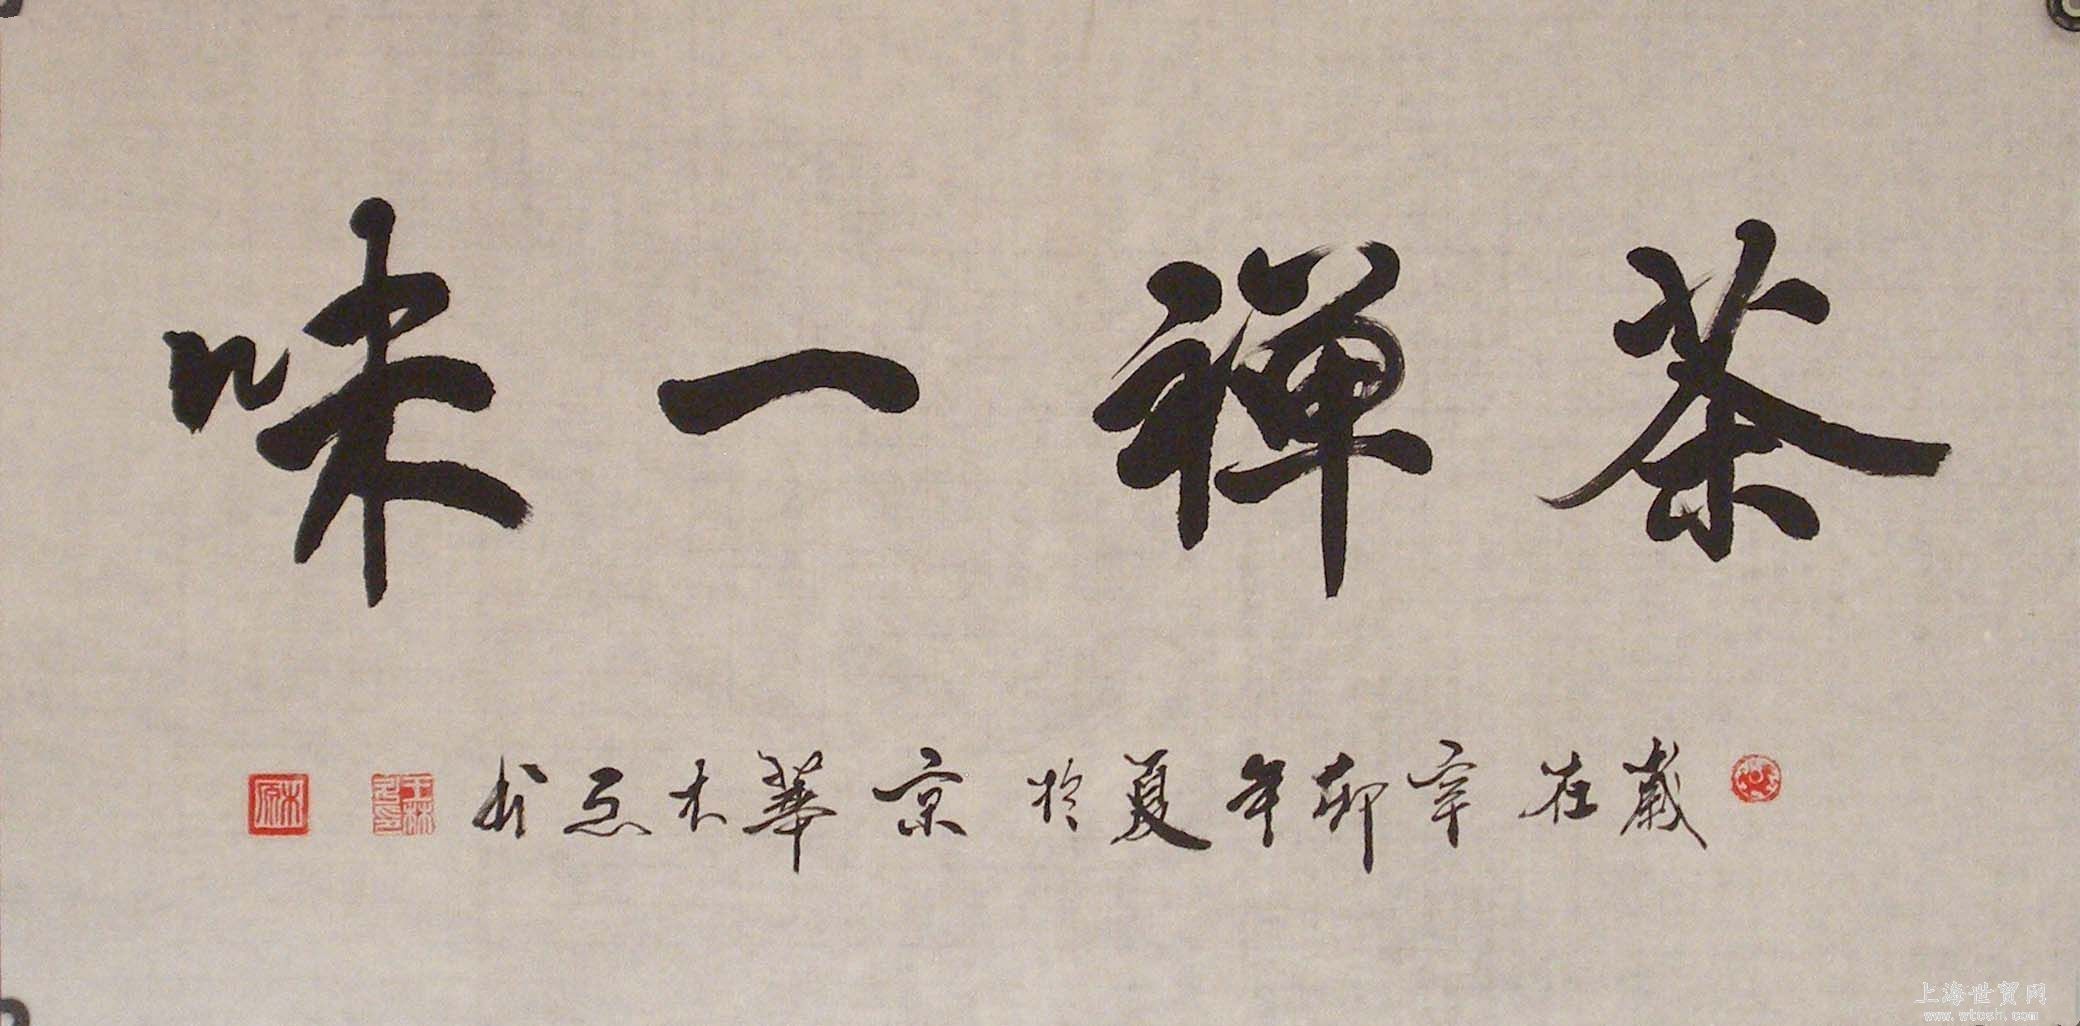 茶禅一味
歲在辛卯年夏於京華木
上海世贸网
www.wtoshi.com